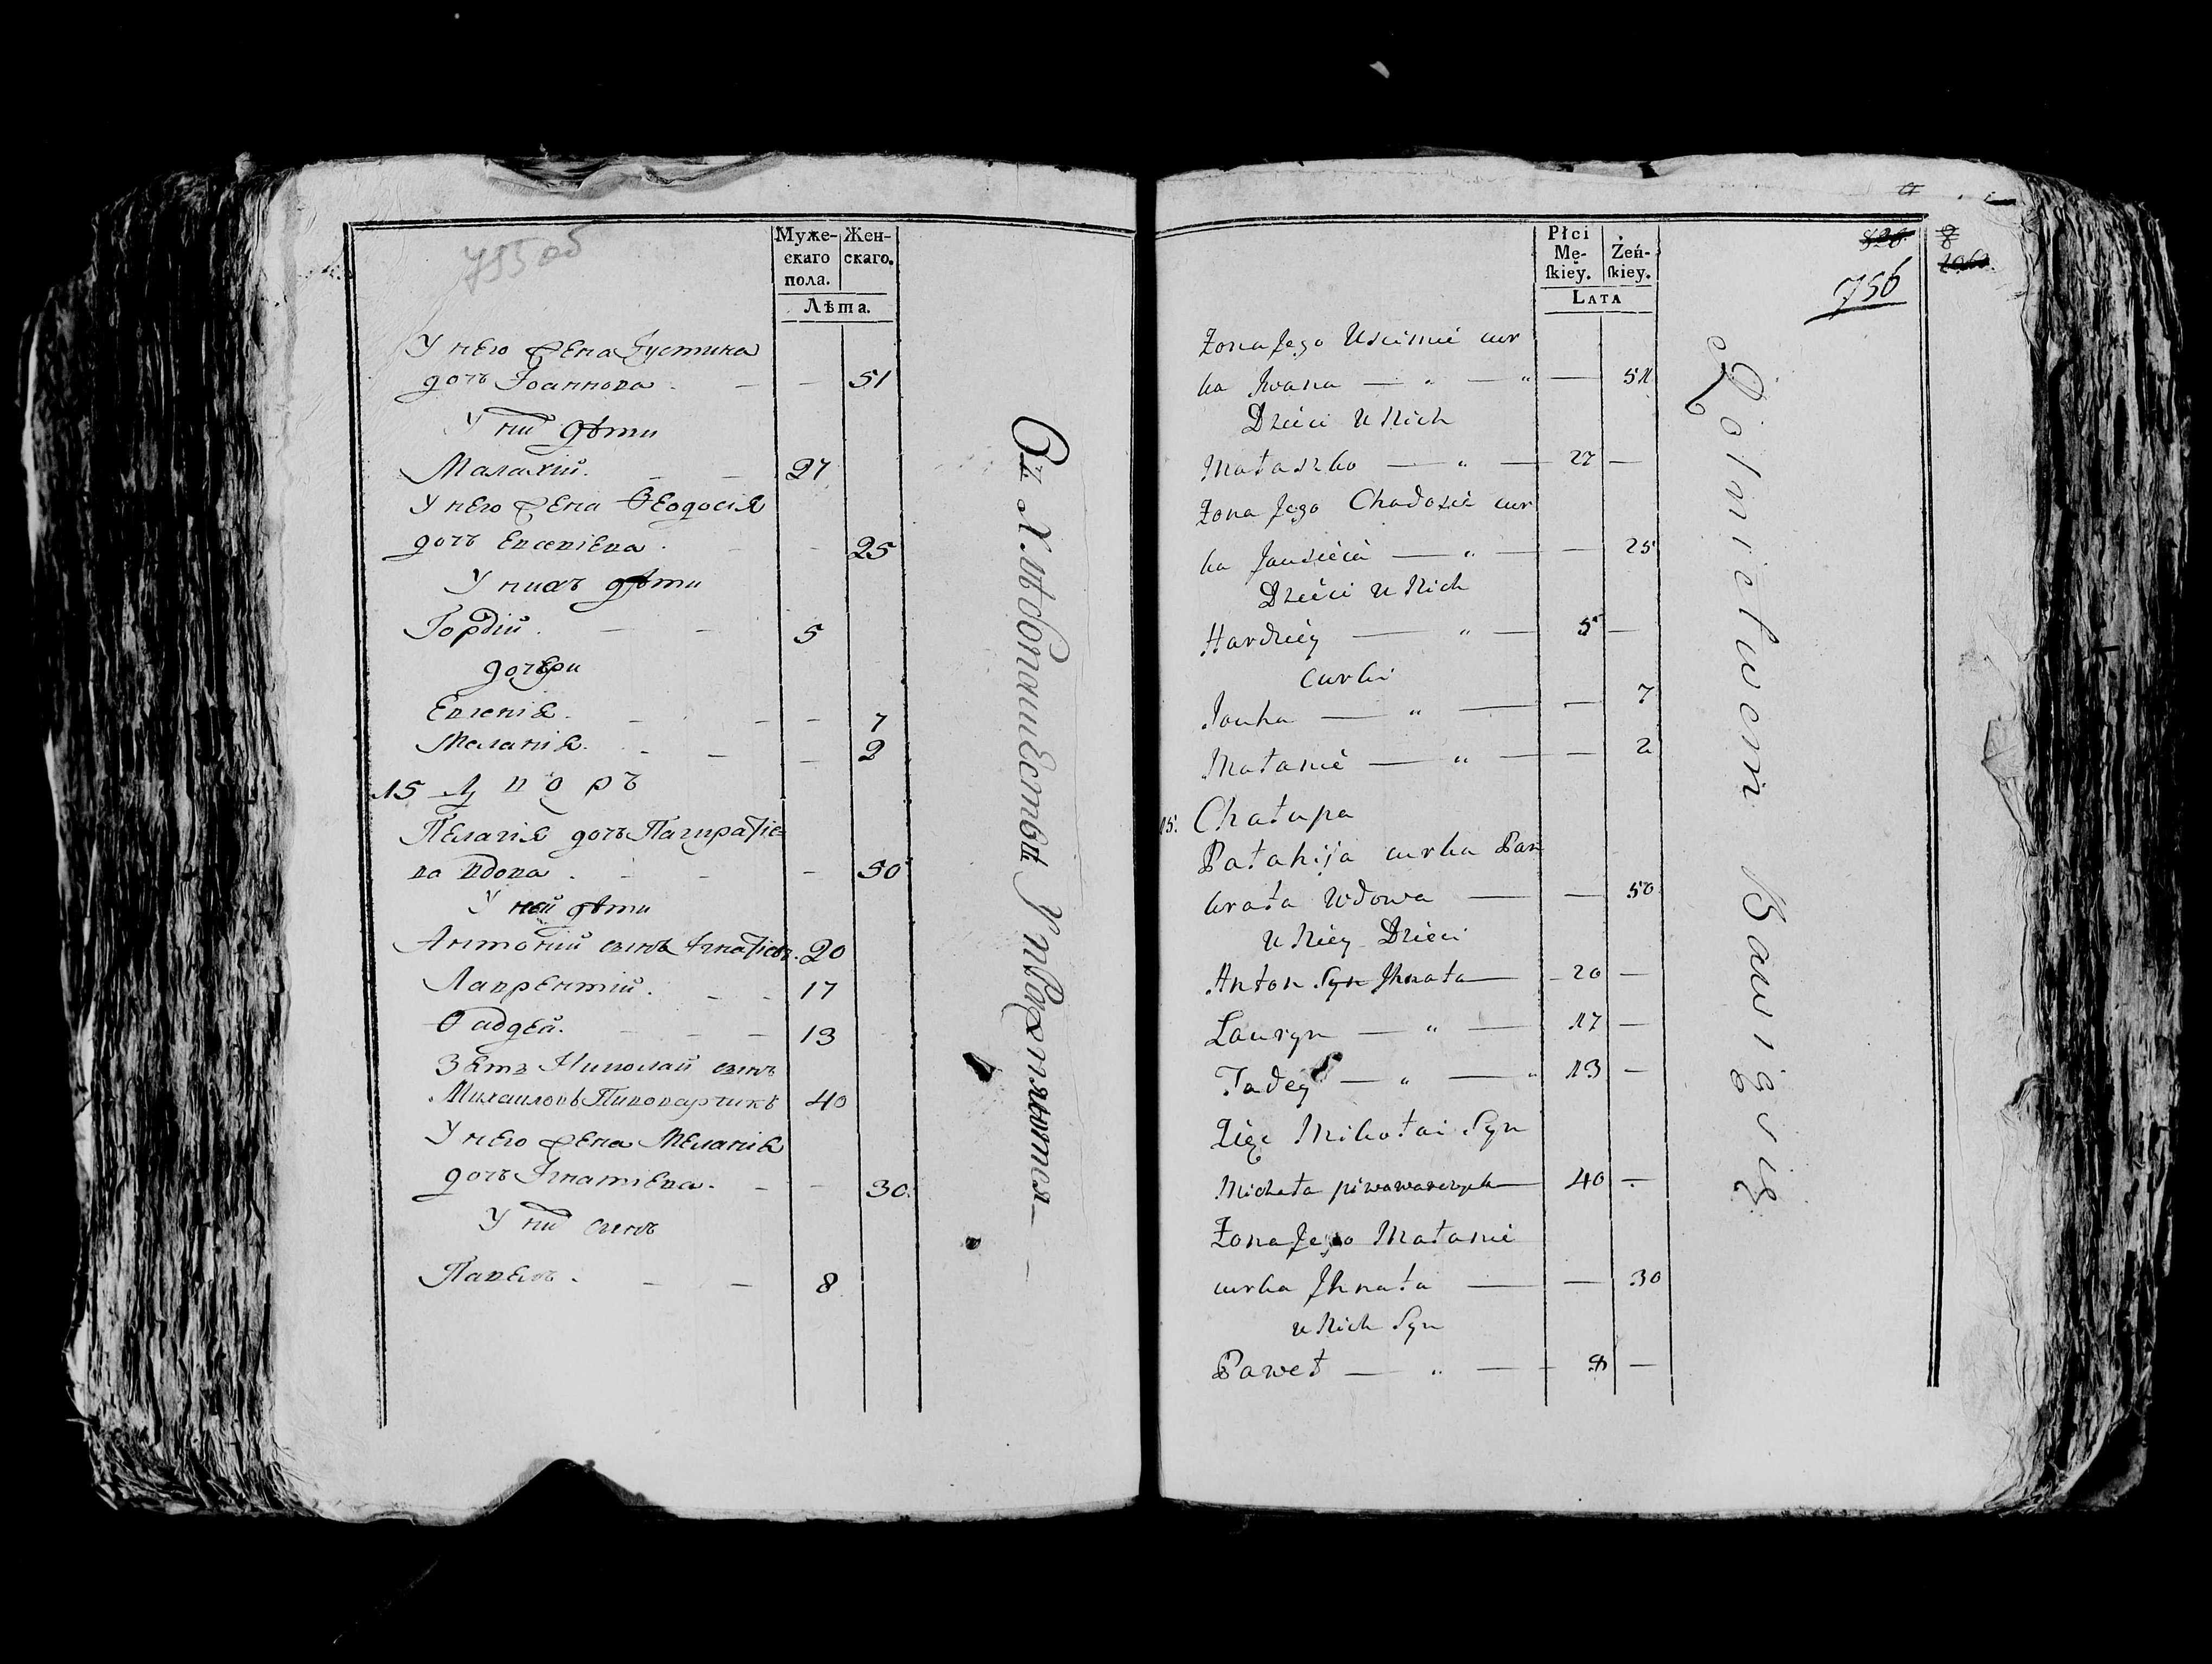 755 об
Муже-
скаго
пола.
Жен-
скаго.
Лѣта.
У него жена Іустина
дочь Іоаннова 51
У них дѣти
Малахій 27
У него жена Ѳеодосія
дочь Евсевіева 25
У нихъ дѣти
Гордій 5
дочери
Евгенія 7
Меланія 2
15 Дворъ
Пелагія дочь Панкратіе
ва вдова 50
У ней дѣти
Антоній сынъ Игнатіевъ 20
Лаврентій 17
Ѳадей 13
Зять Николай сынъ
Михаиловъ Пивоварчикъ 40
У него жена Меланія
дочь Игнатіева 30
У них сынъ
Павелъ 8
Въ Хлѣбопашествѣ Упражняются
Płci
Mę-
skiey.
Żeń-
skiey.
Lata
756
Żona Jego Uscinié cur
ka Iwana — " — " — 51
Dzieci u Nich
Małaszko — " — 27 —
Żona Jego Chadosié cur
ka — " — — 25
Dzieci u Nich
Hardziey — " — 5 —
Curki
Jouha — " — — 7
Małanié — " — — 2
15. Chałupa
Pałahija curka Pan
krata Wdowa — — 50
u Niey Dzieci
Anton Syn Ihnata — 20 —
Lauryn — " — 17 —
Tadey — " — " 13 —
Zięć Mikołai Syn
Michała piwowarczyk — 40 —
Żona Jego Małanié
curka Ihnata — — 30
u Nich Syn
Paweł — " — 8 —
Rolnictwem Bawią się